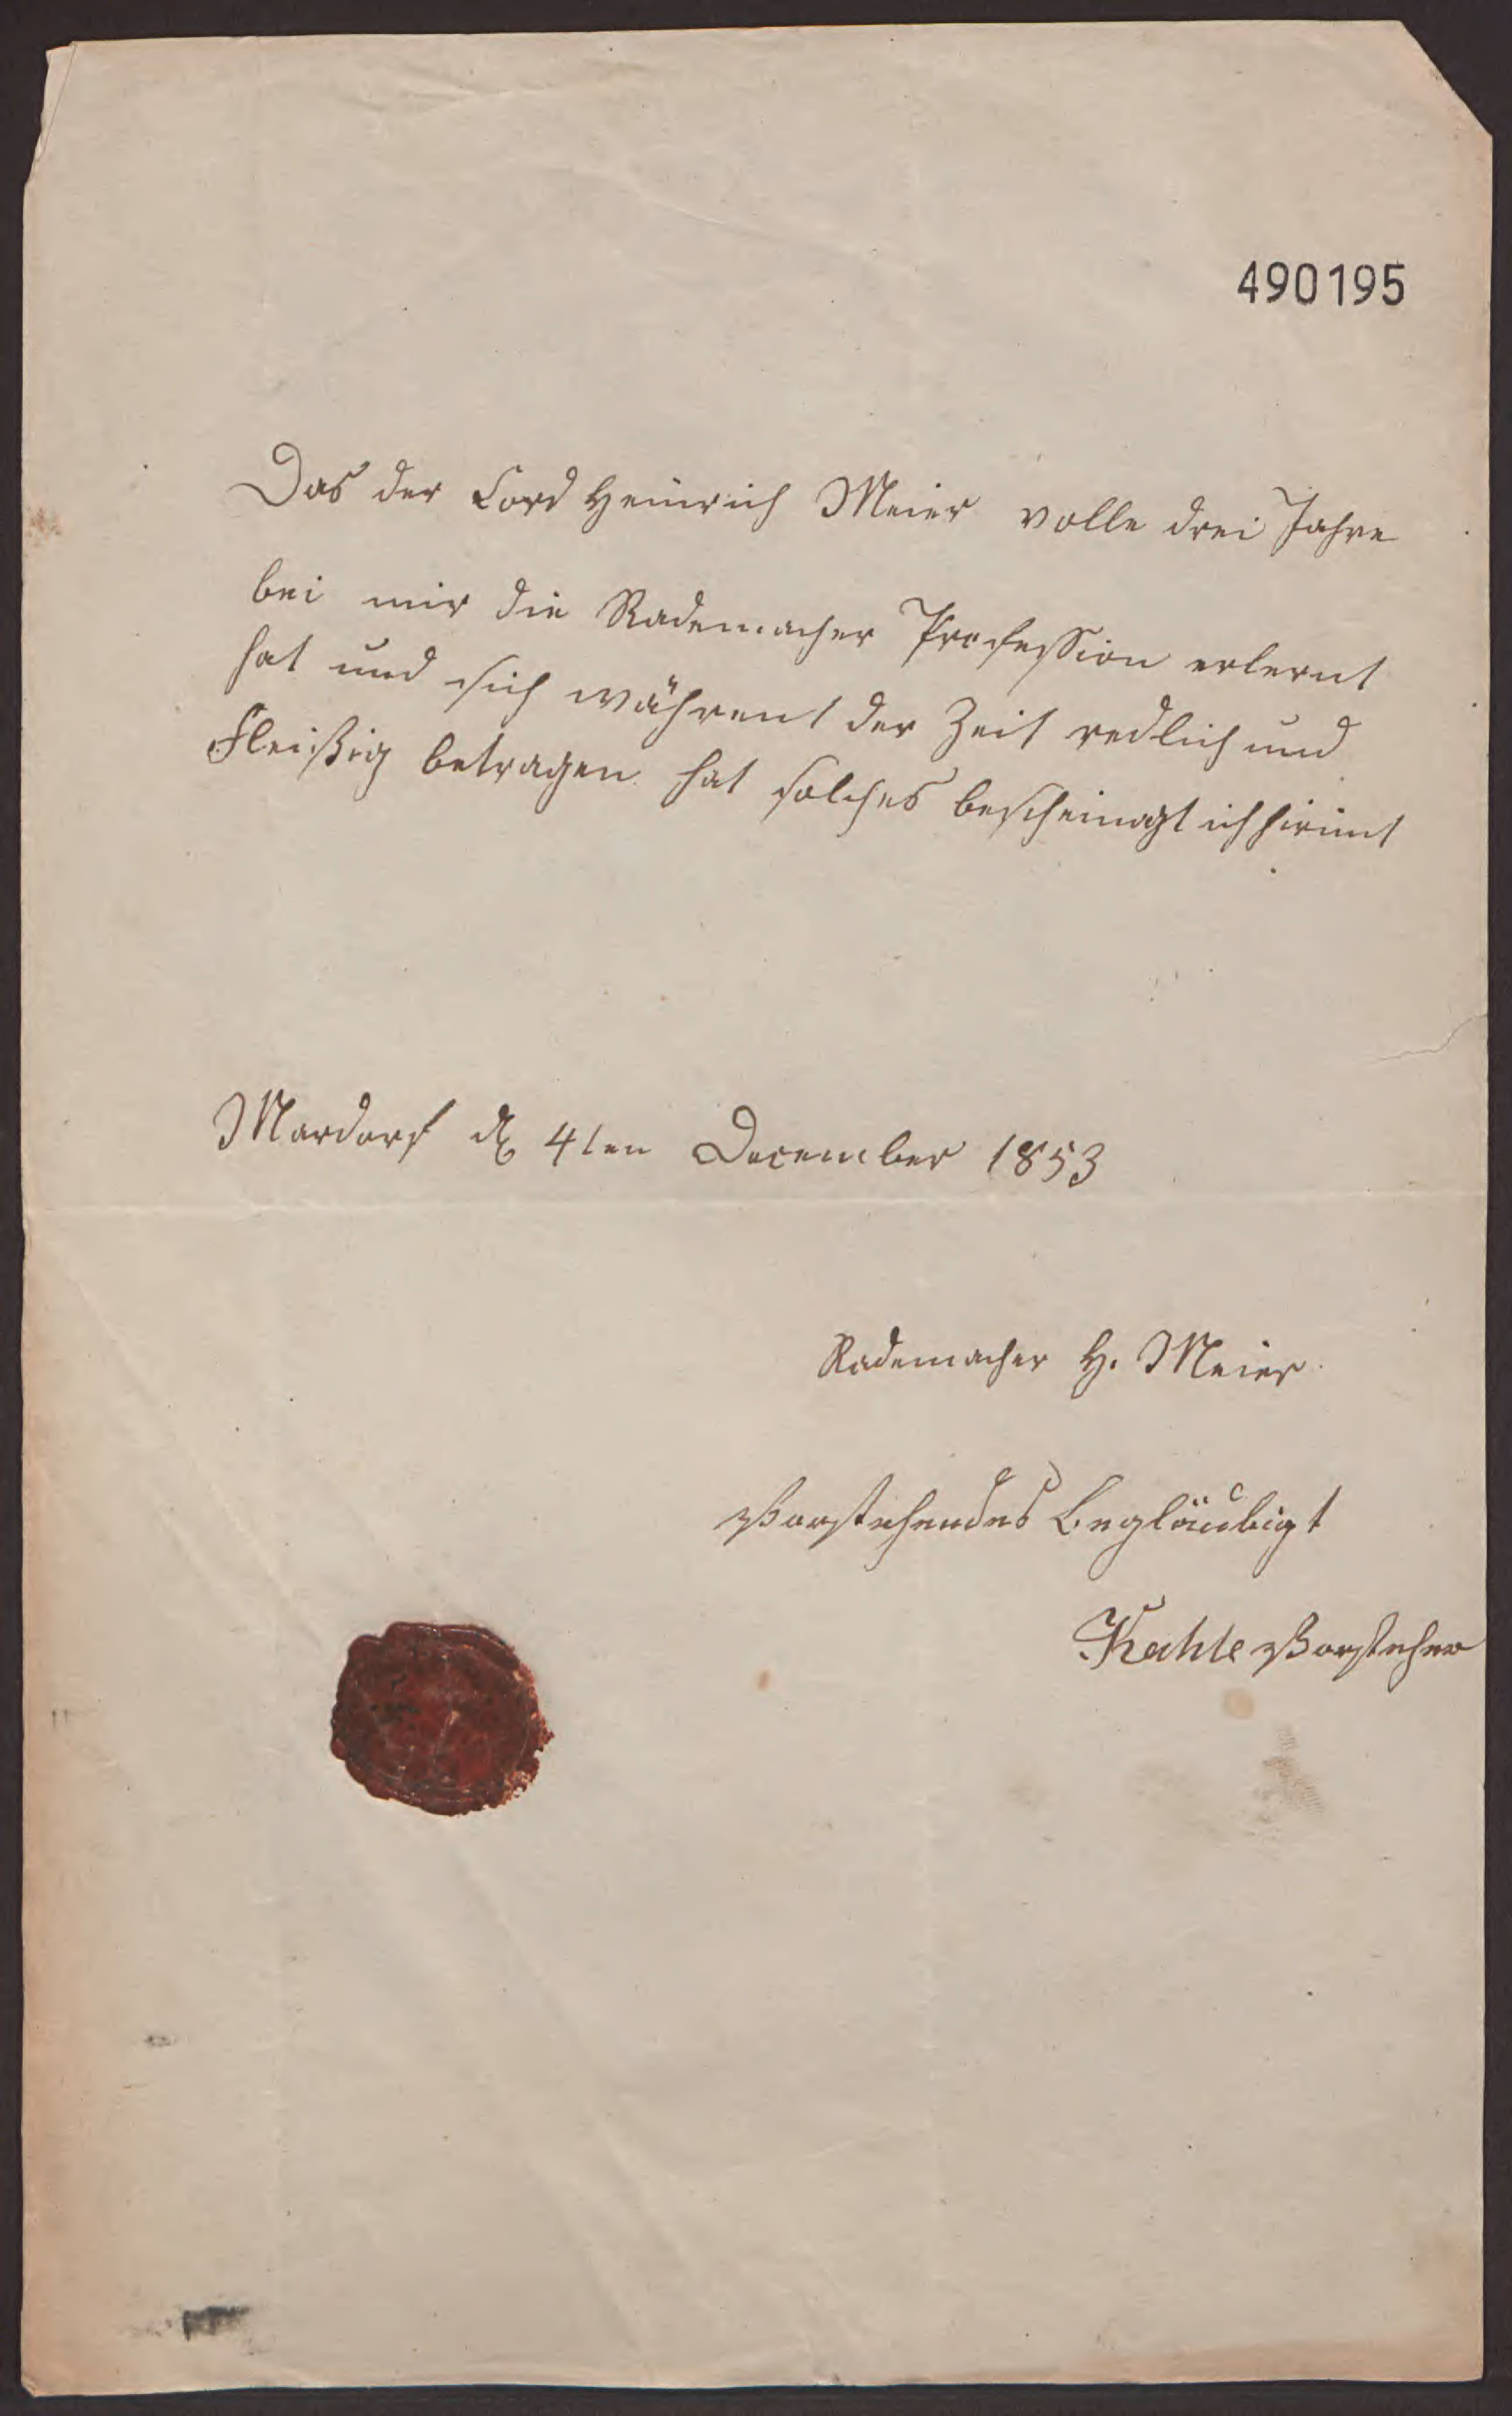 490195
Das der Cord Heinrich Meier volle drei Jahre
bei mir die Rademacher Profession erlernt
hat und sich währent der Zeit redlich und
Fleißig betragen hat solches bescheinigt ich hirimt
Mardorf d 4ten December 1853
Rademacher H. Meier.
Vorstehendes Begläubigt
Kahle Vorsteher